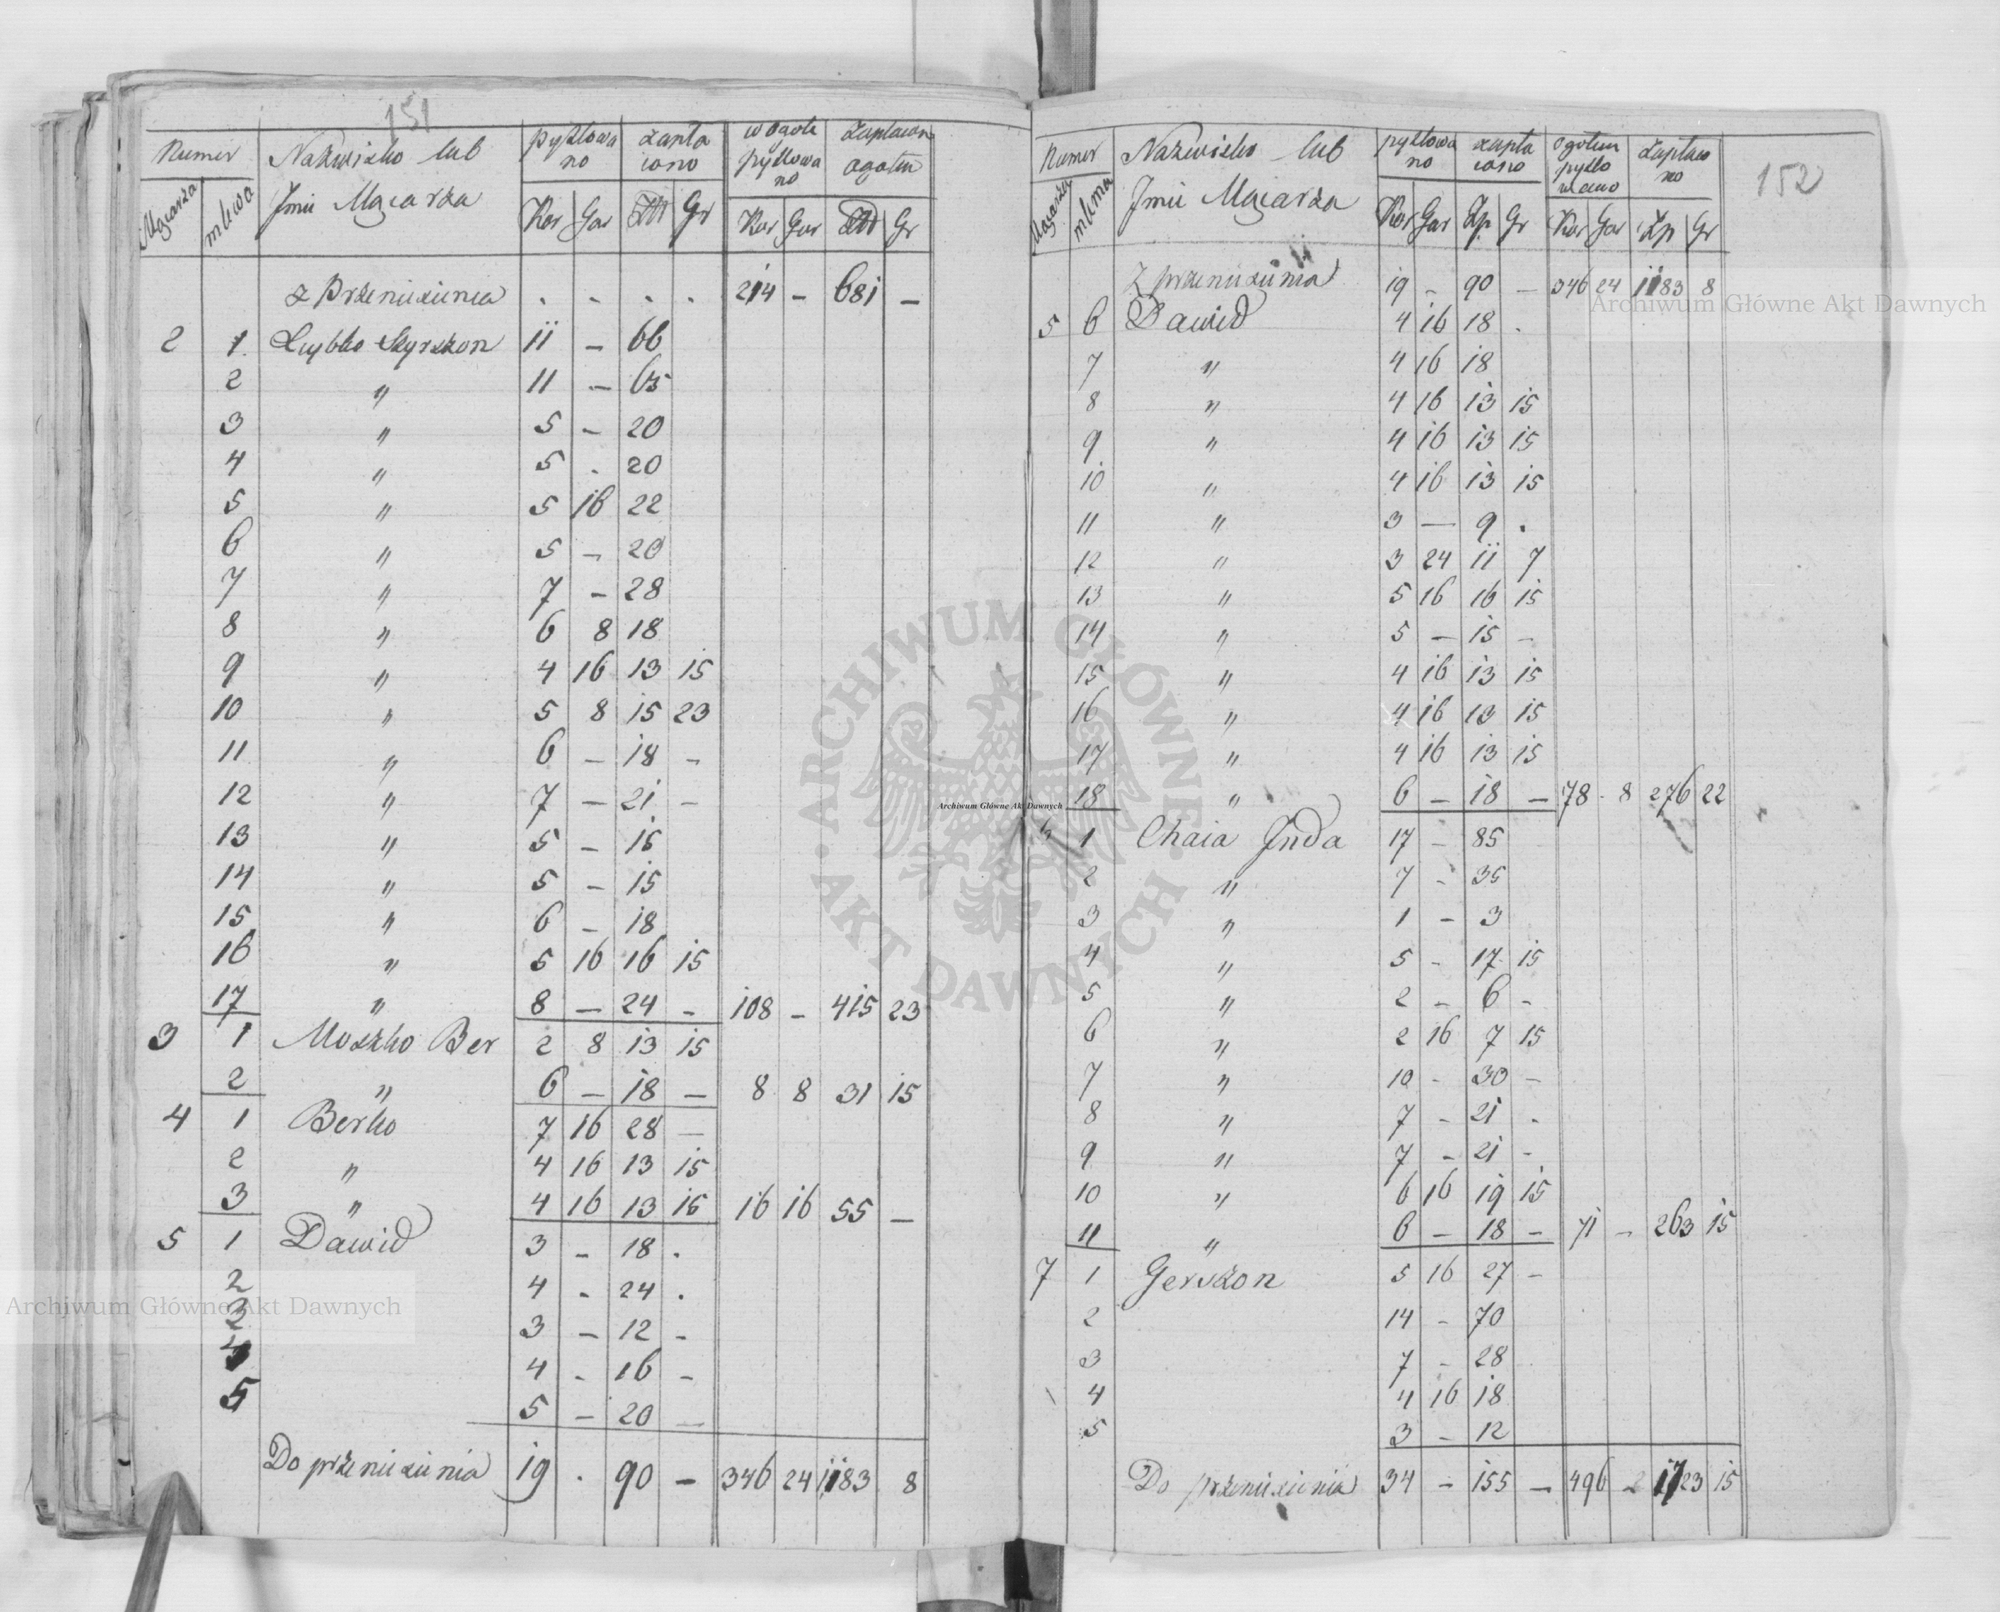 151
Numer | Nazwisko lub | pytlowa | zapła | w ogóle | Zapłacon
Imie Mączarza | no | cono | pytlowa | ogółem
no
Mączarza | mliwa | Kor | Gar | Gr | Kor | Gar | Gr
z Przeniesienia . . . . 214 – 681 –
2 1 11 – 66
2 " 11 – 65
3 " 5 – 20
4 " 5 . 20
5 " 5 16 22
6 " 5 – 20
7 " 7 – 28
8 " 6 8 18
9 " 4 16 13 15
10 " 5 8 15 23
11 " 6 – 18 –
12 " 7 – 21 –
13 " 5 – 15
14 " 5 – 15
15 " 6 – 18
16 " 5 16 16 15
17 " 8 – 24 – 108 – 415 23
3 1 Moszko Ber 2 8 13 15
2 " 6 – 18 – 8 8 31 15
4 1 Berko 7 16 28 –
2 " 4 16 13 15
3 " 4 16 13 15 16 16 55 –
5 1 Dawid 3 – 18 .
2 4 – 24 .
3 3 – 12 –
4 4 – 16 –
5 5 – 20 –
Do przeniesienia 19 . 90 – 346 24 1183 8
152
Numer | Nazwisko lub | pytlowa | zapła | ogółem | Zapłaco
Imie Mączarza | no | cono | pytlo | no
wano
Mączarza | mliwa | Kor | Gar | Zp | Gr | Kor | Gar | Zp | Gr
Z przeniesienia 19 – 90 – 346 24 1183 8
5 6 Dawid 4 16 18 .
7 " 4 16 18
8 " 4 16 13 15
9 " 4 16 13 15
10 " 4 16 13 15
11 " 3 — 9 .
12 " 3 24 11 7
13 " 5 16 16 15
14 " 5 – 15 –
15 " 4 16 13 15
16 " 4 16 13 15
17 " 4 16 13 15
18 " 6 – 18 – 78 . 8 276 22
1 Chaia Juda 17 – 85
2 " 7 – 35
3 " 1 – 3
4 " 5 – 17 15
5 " 2 – 6 –
6 " 2 16 7 15
7 " 10 – 30 –
8 " 7 – 21 .
9 " 7 – 21 –
10 " 6 16 19 15
11 " 6 – 18 – 71 – 263 15
7 1 Gerszon 5 16 27 –
2 14 – 70
3 7 – 28
4 4 16 18
5 3 – 12
Do przeniesienia 34 – 155 – 496 – 2 1723 15
Archiwum Główne Akt Dawnych
Archiwum Główne Akt Dawnych
Archiwum Główne Akt Dawnych
ARCHIWUM GŁÓWNE · AKT DAWNYCH ·